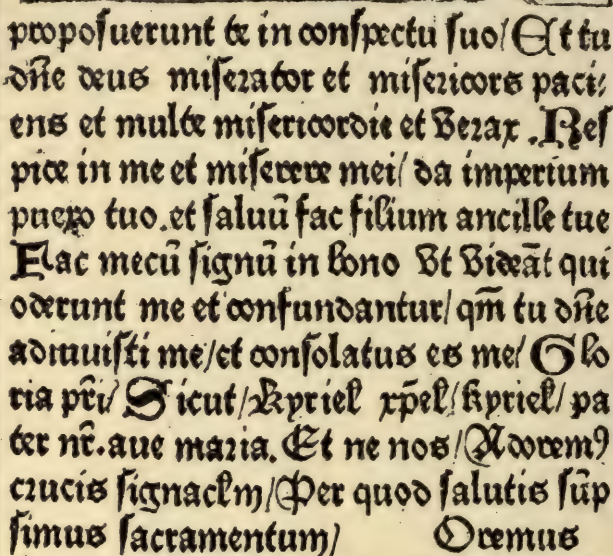 proposuerunt te in conspectu suo/ Et tu
dn̄e deus miserator et misericors paci⸗
ens et multe misericordie et verax . Res
pice in me et miserere mei/ da imperium
puero tuo. et saluū fac filium ancille tue
Fac mecū signū in bono vt videāt qui
oderunt me et confundantur/ qm̄ tu dn̄e
adiuuisti me/ et consolatus es me/ Glo
ria pr̄i/ Sicut/ kyriel xp̄el/ kyriel/ pa
ter nr̄. aue maria. Et ne nos/ Adoremꝰ
crucis signaclm/ Per quod salutis sūp
simus sacramentum/ Oremus